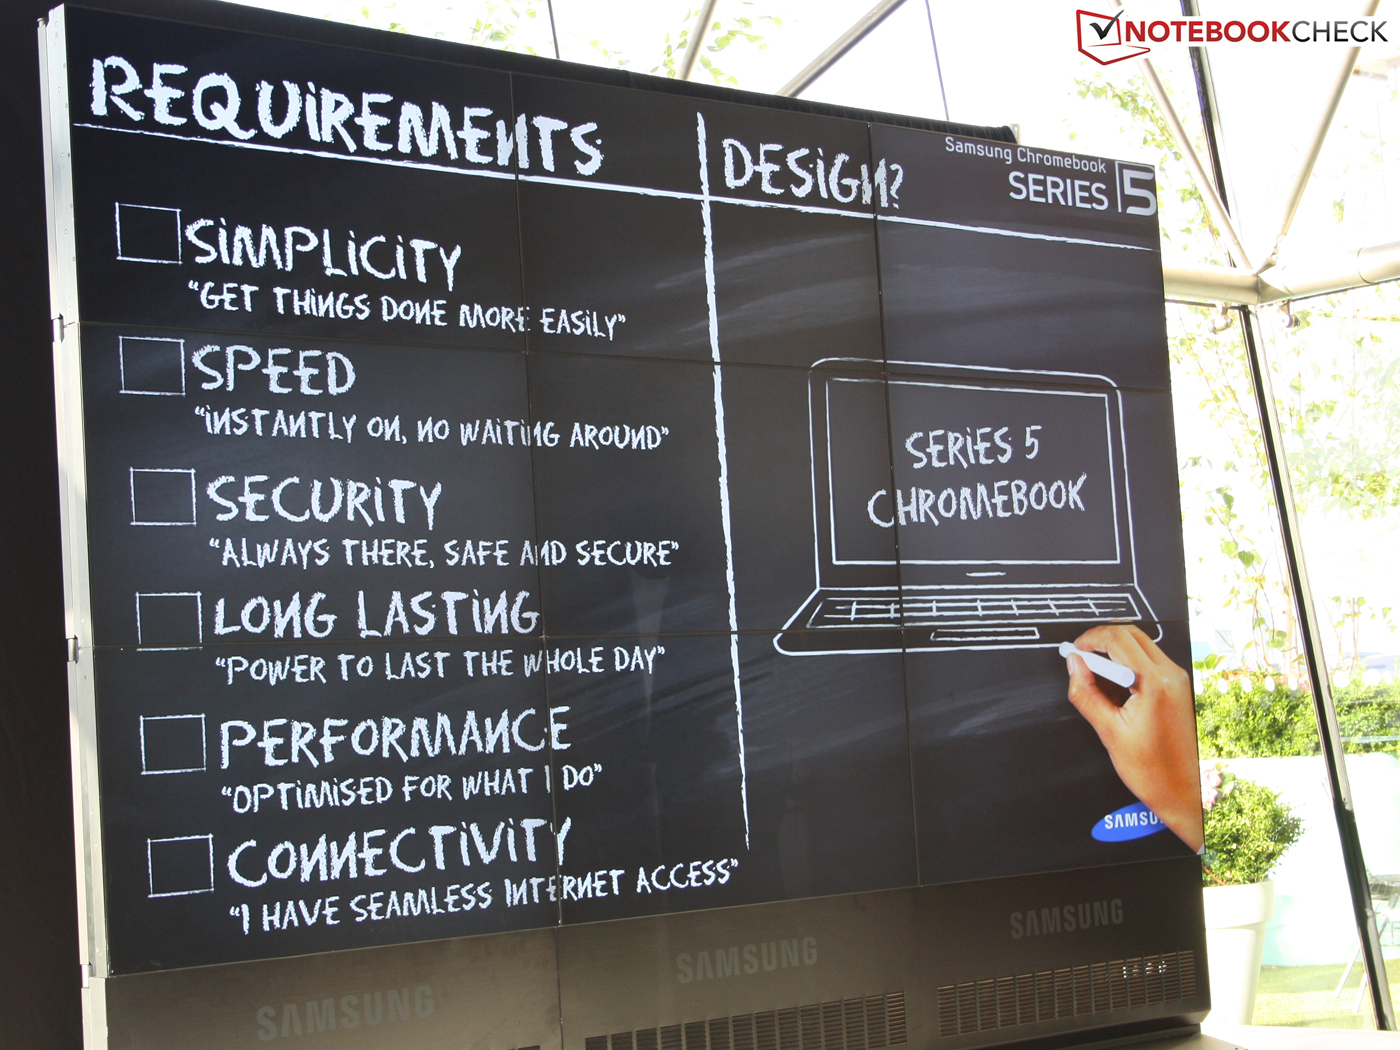 NOTEBOOKCHECK
REQUIREMENTS
DESIGN?
Samsung Chromebook
SERIES 5
SIMPLICITY
"GET THINGS DONE MORE EASILY"
SPEED
"INSTANTLY ON, NO WAITING AROUND"
SECURITY
"ALWAYS THERE, SAFE AND SECURE"
LONG LASTING
"POWER TO LAST THE WHOLE DAY"
PERFORMANCE
"OPTIMISED FOR WHAT I DO"
CONNECTIVITY
"I HAVE SEAMLESS INTERNET ACCESS"
SERIES 5
CHROMEBOOK
SAMSU
SAMSUNG
SAMSUNG
SAMSUNG